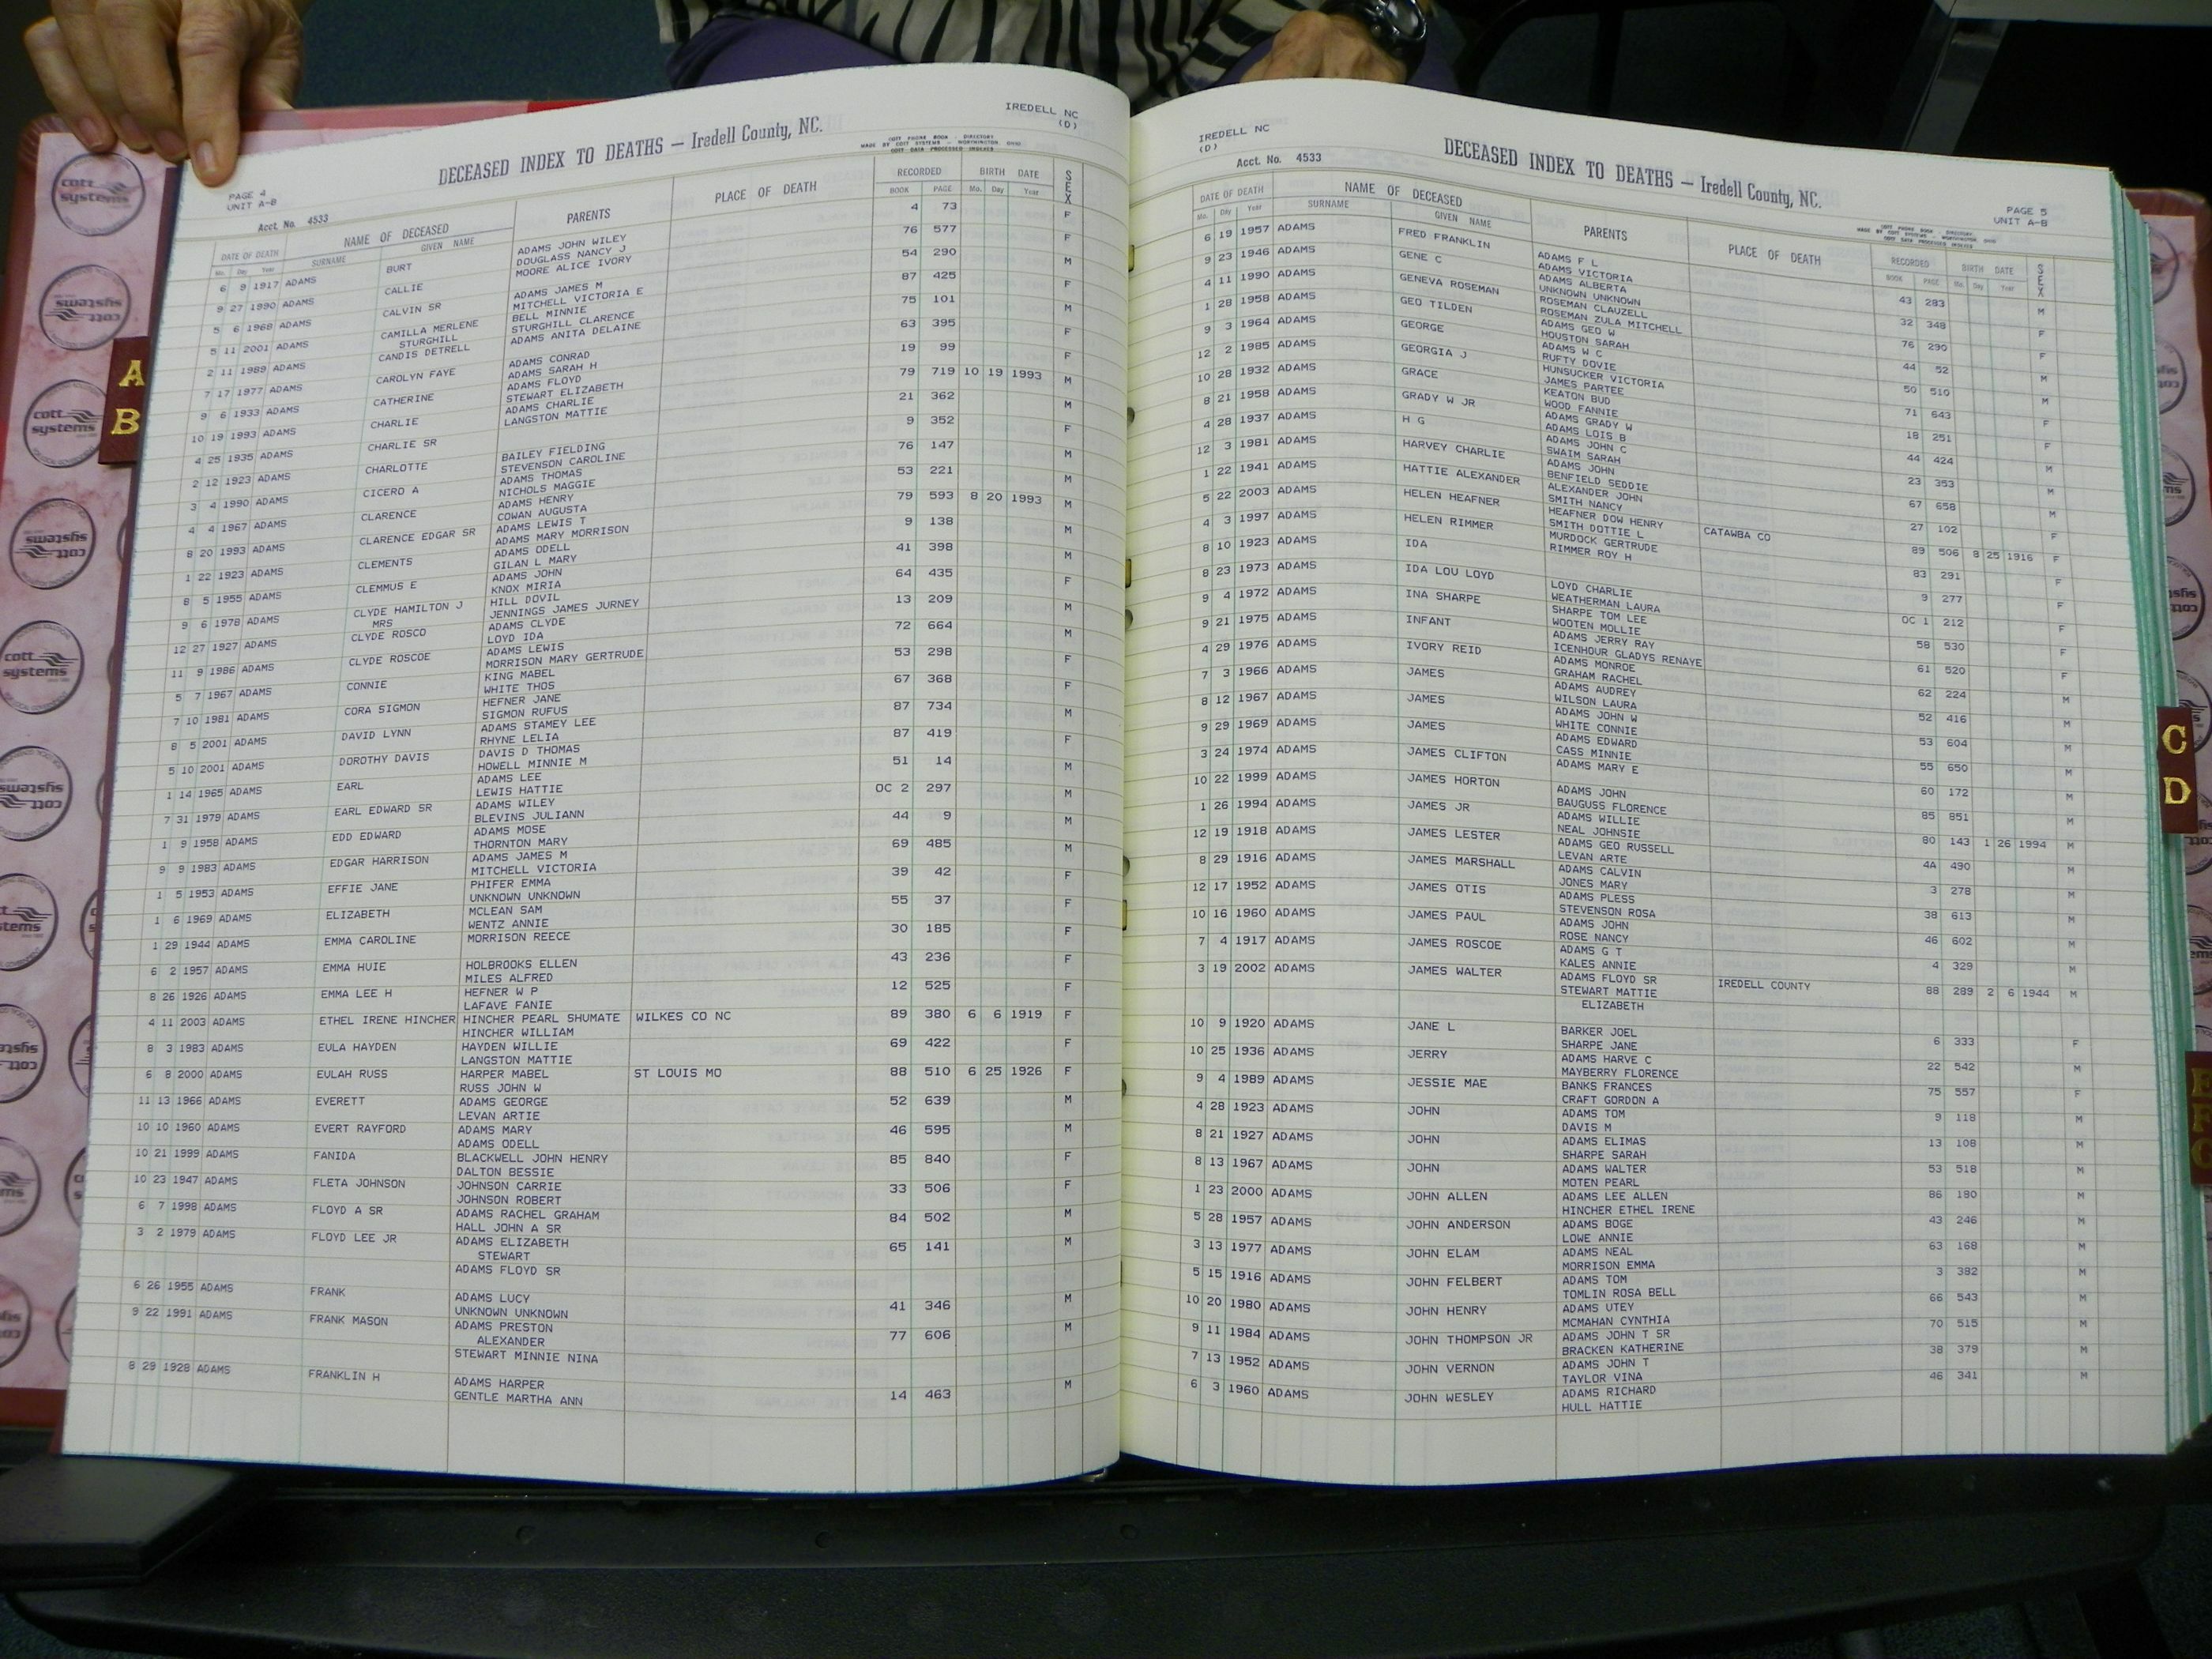 IREDELL NC
(D)
DECEASED INDEX TO DEATHS — Iredell County, NC.
COTT PHONE BOOK - DIRECTORY
MADE BY COTT SYSTEMS - WORTHINGTON, OHIO
COTT DATA PROCESSED INDEXES
PAGE 4
UNIT A-B
Acct. No. 4533
DATE OF DEATH NAME OF DECEASED PARENTS PLACE OF DEATH RECORDED BIRTH DATE SEX
Mo. Day Year SURNAME GIVEN NAME BOOK PAGE Mo. Day Year
6 9 1917 ADAMS BURT ADAMS JOHN WILEY 4 73 F
DOUGLASS NANCY J
9 27 1990 ADAMS CALLIE MOORE ALICE IVORY 76 577 F
5 6 1968 ADAMS CALVIN SR ADAMS JAMES M 54 290 M
MITCHELL VICTORIA E
5 11 2001 ADAMS CAMILLA MERLENE BELL MINNIE 87 425 F
STURGHILL STURGHILL CLARENCE
2 11 1989 ADAMS CANDIS DETRELL ADAMS ANITA DELAINE 75 101 M
7 17 1977 ADAMS CAROLYN FAYE ADAMS CONRAD 63 395 F
ADAMS SARAH H
9 6 1933 ADAMS CATHERINE ADAMS FLOYD 19 99 F
STEWART ELIZABETH
10 19 1993 ADAMS CHARLIE ADAMS CHARLIE 79 719 10 19 1993 M
LANGSTON MATTIE
4 25 1935 ADAMS CHARLIE SR 21 362 M
2 12 1923 ADAMS CHARLOTTE BAILEY FIELDING 9 352 F
STEVENSON CAROLINE
3 4 1990 ADAMS CICERO A ADAMS THOMAS 76 147 M
NICHOLS MAGGIE
4 4 1967 ADAMS CLARENCE ADAMS HENRY 53 221 M
COWAN AUGUSTA
8 20 1993 ADAMS CLARENCE EDGAR SR ADAMS LEWIS T 79 593 8 20 1993 M
ADAMS MARY MORRISON
1 22 1923 ADAMS CLEMENTS ADAMS ODELL 9 138 M
GILAN L MARY
8 5 1955 ADAMS CLEMMUS E ADAMS JOHN 41 398 M
KNOX MIRIA
9 6 1978 ADAMS CLYDE HAMILTON J HILL DOVIL 64 435 F
MRS JENNINGS JAMES JURNEY
12 27 1927 ADAMS CLYDE ROSCO ADAMS CLYDE 13 209 M
LOYD IDA
11 9 1986 ADAMS CLYDE ROSCOE ADAMS LEWIS 72 664 M
MORRISON MARY GERTRUDE
5 7 1967 ADAMS CONNIE KING MABEL 53 298 F
WHITE THOS
7 10 1981 ADAMS CORA SIGMON HEFNER JANE 67 368 F
SIGMON RUFUS
8 5 2001 ADAMS DAVID LYNN ADAMS STAMEY LEE 87 734 M
RHYNE LELIA
5 10 2001 ADAMS DOROTHY DAVIS DAVIS D THOMAS 87 419 F
HOWELL MINNIE M
1 14 1965 ADAMS EARL ADAMS LEE 51 14 M
LEWIS HATTIE
7 31 1979 ADAMS EARL EDWARD SR ADAMS WILEY OC 2 297 M
BLEVINS JULIANN
1 9 1958 ADAMS EDD EDWARD ADAMS MOSE 44 9 M
THORNTON MARY
9 9 1983 ADAMS EDGAR HARRISON ADAMS JAMES M 69 485 M
MITCHELL VICTORIA
1 5 1953 ADAMS EFFIE JANE PHIFER EMMA 39 42 F
UNKNOWN UNKNOWN
1 6 1969 ADAMS ELIZABETH MCLEAN SAM 55 37 F
WENTZ ANNIE
1 29 1944 ADAMS EMMA CAROLINE MORRISON REECE 30 185 F
6 2 1957 ADAMS EMMA HUIE HOLBROOKS ELLEN 43 236 F
MILES ALFRED
8 26 1926 ADAMS EMMA LEE H HEFNER W P 12 525 F
LAFAVE FANIE
4 11 2003 ADAMS ETHEL IRENE HINCHER HINCHER PEARL SHUMATE WILKES CO NC 89 380 6 6 1919 F
HINCHER WILLIAM
8 3 1983 ADAMS EULA HAYDEN HAYDEN WILLIE 69 422 F
LANGSTON MATTIE
6 8 2000 ADAMS EULAH RUSS HARPER MABEL ST LOUIS MO 88 510 6 25 1926 F
RUSS JOHN W
11 13 1966 ADAMS EVERETT ADAMS GEORGE 52 639 M
LEVAN ARTIE
10 10 1960 ADAMS EVERT RAYFORD ADAMS MARY 46 595 M
ADAMS ODELL
10 21 1999 ADAMS FANIDA BLACKWELL JOHN HENRY 85 840 F
DALTON BESSIE
10 23 1947 ADAMS FLETA JOHNSON JOHNSON CARRIE 33 506 F
JOHNSON ROBERT
6 7 1998 ADAMS FLOYD A SR ADAMS RACHEL GRAHAM 84 502 M
HALL JOHN A SR
3 2 1979 ADAMS FLOYD LEE JR ADAMS ELIZABETH 65 141 M
STEWART
ADAMS FLOYD SR
6 26 1955 ADAMS FRANK ADAMS LUCY 41 346 M
UNKNOWN UNKNOWN
9 22 1991 ADAMS FRANK MASON ADAMS PRESTON 77 606 M
ALEXANDER
STEWART MINNIE NINA
8 29 1928 ADAMS FRANKLIN H ADAMS HARPER 14 463 M
GENTLE MARTHA ANN
IREDELL NC
(D)
Acct. No. 4533
DECEASED INDEX TO DEATHS — Iredell County, NC.
PAGE 5
UNIT A-B
COTT PHONE BOOK - DIRECTORY
MADE BY COTT SYSTEMS - WORTHINGTON, OHIO
COTT DATA PROCESSED INDEXES
DATE OF DEATH NAME OF DECEASED PARENTS PLACE OF DEATH RECORDED BIRTH DATE SEX
Mo. Day Year SURNAME GIVEN NAME BOOK PAGE Mo. Day Year
6 19 1957 ADAMS FRED FRANKLIN ADAMS F L 43 283 M
ADAMS VICTORIA
9 23 1946 ADAMS GENE C ADAMS ALBERTA 32 348 F
UNKNOWN UNKNOWN
4 11 1990 ADAMS GENEVA ROSEMAN ROSEMAN CLAUZELL 76 290 F
ROSEMAN ZULA MITCHELL
1 28 1958 ADAMS GEO TILDEN ADAMS GEO W 44 52 M
HOUSTON SARAH
9 3 1964 ADAMS GEORGE ADAMS W C 50 510 M
RUFTY DOVIE
12 2 1985 ADAMS GEORGIA J HUNSUCKER VICTORIA 71 643 F
JAMES PARTEE
10 28 1932 ADAMS GRACE KEATON BUD 18 251 F
WOOD FANNIE
8 21 1958 ADAMS GRADY W JR ADAMS GRADY W 44 424 M
ADAMS LOIS B
4 28 1937 ADAMS H G ADAMS JOHN C 23 353 M
SWAIM SARAH
12 3 1981 ADAMS HARVEY CHARLIE ADAMS JOHN 67 658 M
BENFIELD SEDDIE
1 22 1941 ADAMS HATTIE ALEXANDER ALEXANDER JOHN 27 102 F
SMITH NANCY
5 22 2003 ADAMS HELEN HEAFNER HEAFNER DOW HENRY CATAWBA CO 89 506 8 25 1916 F
SMITH DOTTIE L
4 3 1997 ADAMS HELEN RIMMER MURDOCK GERTRUDE 83 291 F
RIMMER ROY H
8 10 1923 ADAMS IDA 9 277 F
8 23 1973 ADAMS IDA LOU LOYD LOYD CHARLIE OC 1 212 F
WEATHERMAN LAURA
9 4 1972 ADAMS INA SHARPE SHARPE TOM LEE 58 530 F
WOOTEN MOLLIE
9 21 1975 ADAMS INFANT ADAMS JERRY RAY 61 520 F
ICENHOUR GLADYS RENAYE
4 29 1976 ADAMS IVORY REID ADAMS MONROE 62 224 M
GRAHAM RACHEL
7 3 1966 ADAMS JAMES ADAMS AUDREY 52 416 M
WILSON LAURA
8 12 1967 ADAMS JAMES ADAMS JOHN W 53 604 M
WHITE CONNIE
9 29 1969 ADAMS JAMES ADAMS EDWARD 55 650 M
CASS MINNIE
3 24 1974 ADAMS JAMES CLIFTON ADAMS MARY E 60 172 M
10 22 1999 ADAMS JAMES HORTON ADAMS JOHN 85 851 M
BAUGUSS FLORENCE
1 26 1994 ADAMS JAMES JR ADAMS WILLIE 80 143 1 26 1994 M
NEAL JOHNSIE
12 19 1918 ADAMS JAMES LESTER ADAMS GEO RUSSELL 4A 490 M
LEVAN ARTE
8 29 1916 ADAMS JAMES MARSHALL ADAMS CALVIN 3 278 M
JONES MARY
12 17 1952 ADAMS JAMES OTIS ADAMS PLESS 38 613 M
STEVENSON ROSA
10 16 1960 ADAMS JAMES PAUL ADAMS JOHN 46 602 M
ROSE NANCY
7 4 1917 ADAMS JAMES ROSCOE ADAMS G T 4 329 M
KALES ANNIE
3 19 2002 ADAMS JAMES WALTER ADAMS FLOYD SR IREDELL COUNTY 88 289 2 6 1944 M
STEWART MATTIE
ELIZABETH
10 9 1920 ADAMS JANE L BARKER JOEL 6 333 F
SHARPE JANE
10 25 1936 ADAMS JERRY ADAMS HARVE C 22 542 M
MAYBERRY FLORENCE
9 4 1989 ADAMS JESSIE MAE BANKS FRANCES 75 557 F
CRAFT GORDON A
4 28 1923 ADAMS JOHN ADAMS TOM 9 118 M
DAVIS M
8 21 1927 ADAMS JOHN ADAMS ELIMAS 13 108 M
SHARPE SARAH
8 13 1967 ADAMS JOHN ADAMS WALTER 53 518 M
MOTEN PEARL
1 23 2000 ADAMS JOHN ALLEN ADAMS LEE ALLEN 86 180 M
HINCHER ETHEL IRENE
5 28 1957 ADAMS JOHN ANDERSON ADAMS BOGE 43 246 M
LOWE ANNIE
3 13 1977 ADAMS JOHN ELAM ADAMS NEAL 63 168 M
MORRISON EMMA
5 15 1916 ADAMS JOHN FELBERT ADAMS TOM 3 382 M
TOMLIN ROSA BELL
10 20 1980 ADAMS JOHN HENRY ADAMS UTEY 66 543 M
MCMAHAN CYNTHIA
9 11 1984 ADAMS JOHN THOMPSON JR ADAMS JOHN T SR 70 515 M
BRACKEN KATHERINE
7 13 1952 ADAMS JOHN VERNON ADAMS JOHN T 38 379 M
TAYLOR VINA
6 3 1960 ADAMS JOHN WESLEY ADAMS RICHARD 46 341 M
HULL HATTIE
A
B
C
D
cott
systems